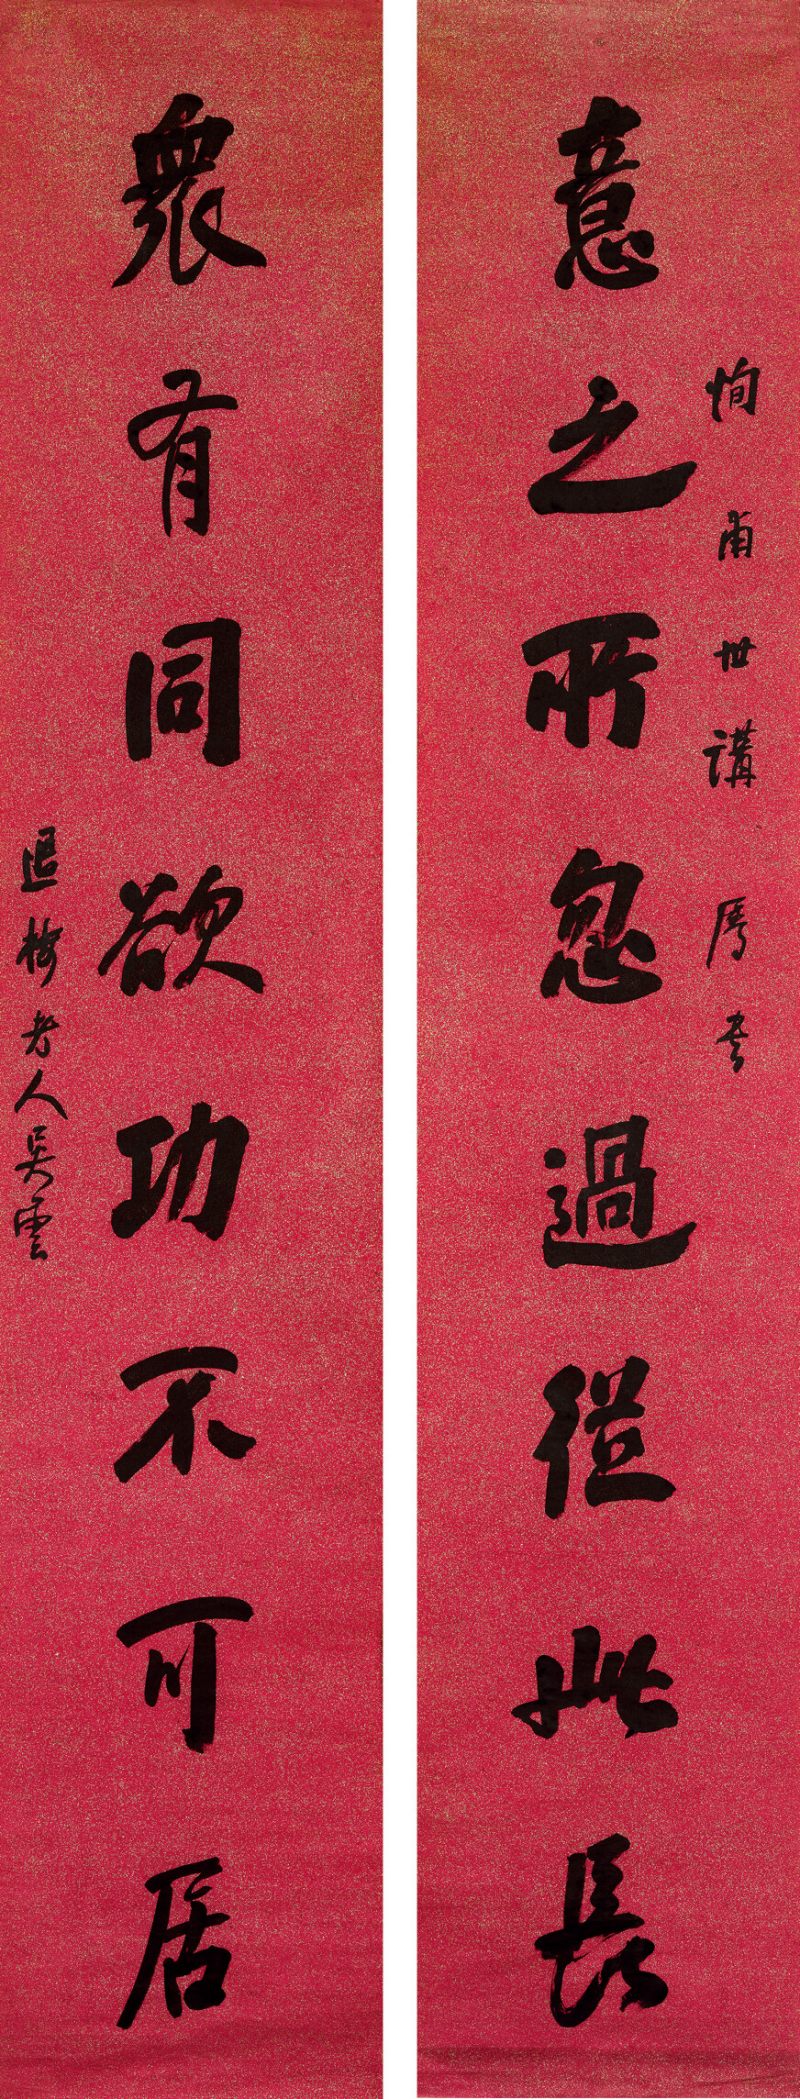 恂甫世講 屬書
意之所忽過從此長
眾有同欲功不可居
退樓老人吳雲